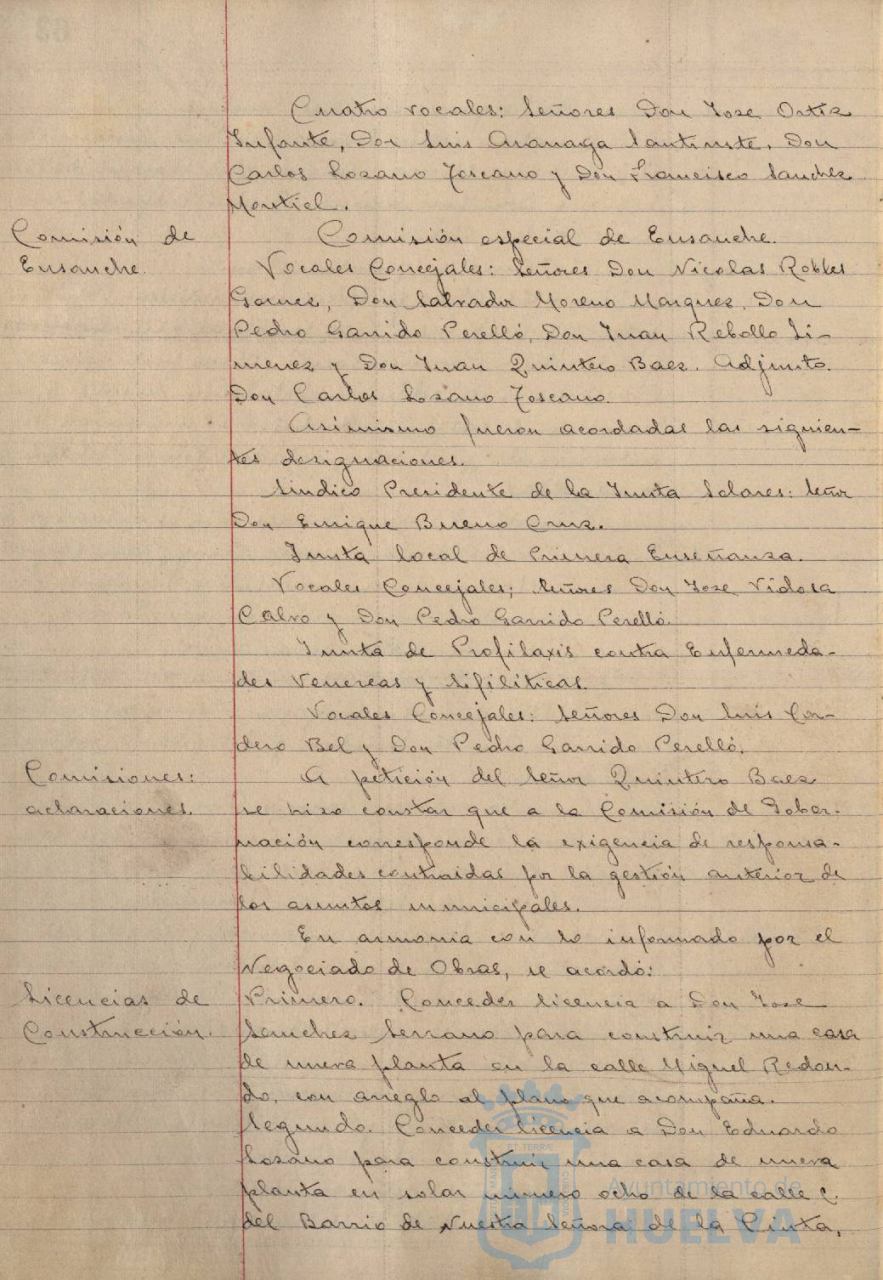 Cuatro vocales: Señores Don Jose Ortiz
Infante, Don Luis Aranaga Don
Carlos Lozano Toscano y Don Francisco Sanchez
Montiel.
Comisión de
Ensanche.
Comisión especial de Ensanche.
Vocales Concejales: Señores Don Nicolas Robles
Gomez, Don Salvador Moreno Marquez, Don
Pedro Garrido Perelló, Don Juan Rebollo Ji-
menez y Don Juan Quintero Baez. Adjunto.
Don Carlos Lozano Toscano.
Asimismo fueron acordadas las siguien-
tes designaciones.
Sindico Presidente de la Junta Solares: Señor
Don Enrique Bueno Cruz.
Junta local de Primera Enseñanza.
Vocales Concejales; Señores Don Jose Vidosa
Calvo y Don Pedro Garrido Perelló.
Junta de Profilaxis contra Enfermeda-
des Venereas y Sifilíticas.
Vocales Concejales: Señores Don Luis Cor-
dero Bel y Don Pedro Garrido Perelló.
Comisiones:
aclaraciones.
A petición del Señor Quintero Baez
se hizo constar que a la Comisión de Gober-
nación corresponde la exigencia de responsa-
bilidades contraidas por la gestión anterior de
los asuntos municipales.
En armonia con lo informado por el
Negociado de Obras, se acordó:
Licencias de
Construcción.
Primero. Conceder licencia a Don Jose
Sanchez Serrano para construir una casa
de nueva planta en la calle Miguel Redon-
do, con arreglo al plano que acompaña.
Segundo. Conceder licencia a Don Eduardo
Lozano para construir una casa de nueva
planta en solar número ocho de la calle C.
del Barrio de Nuestra Señora de la Cinta,
Ayuntamiento de
HUELVA